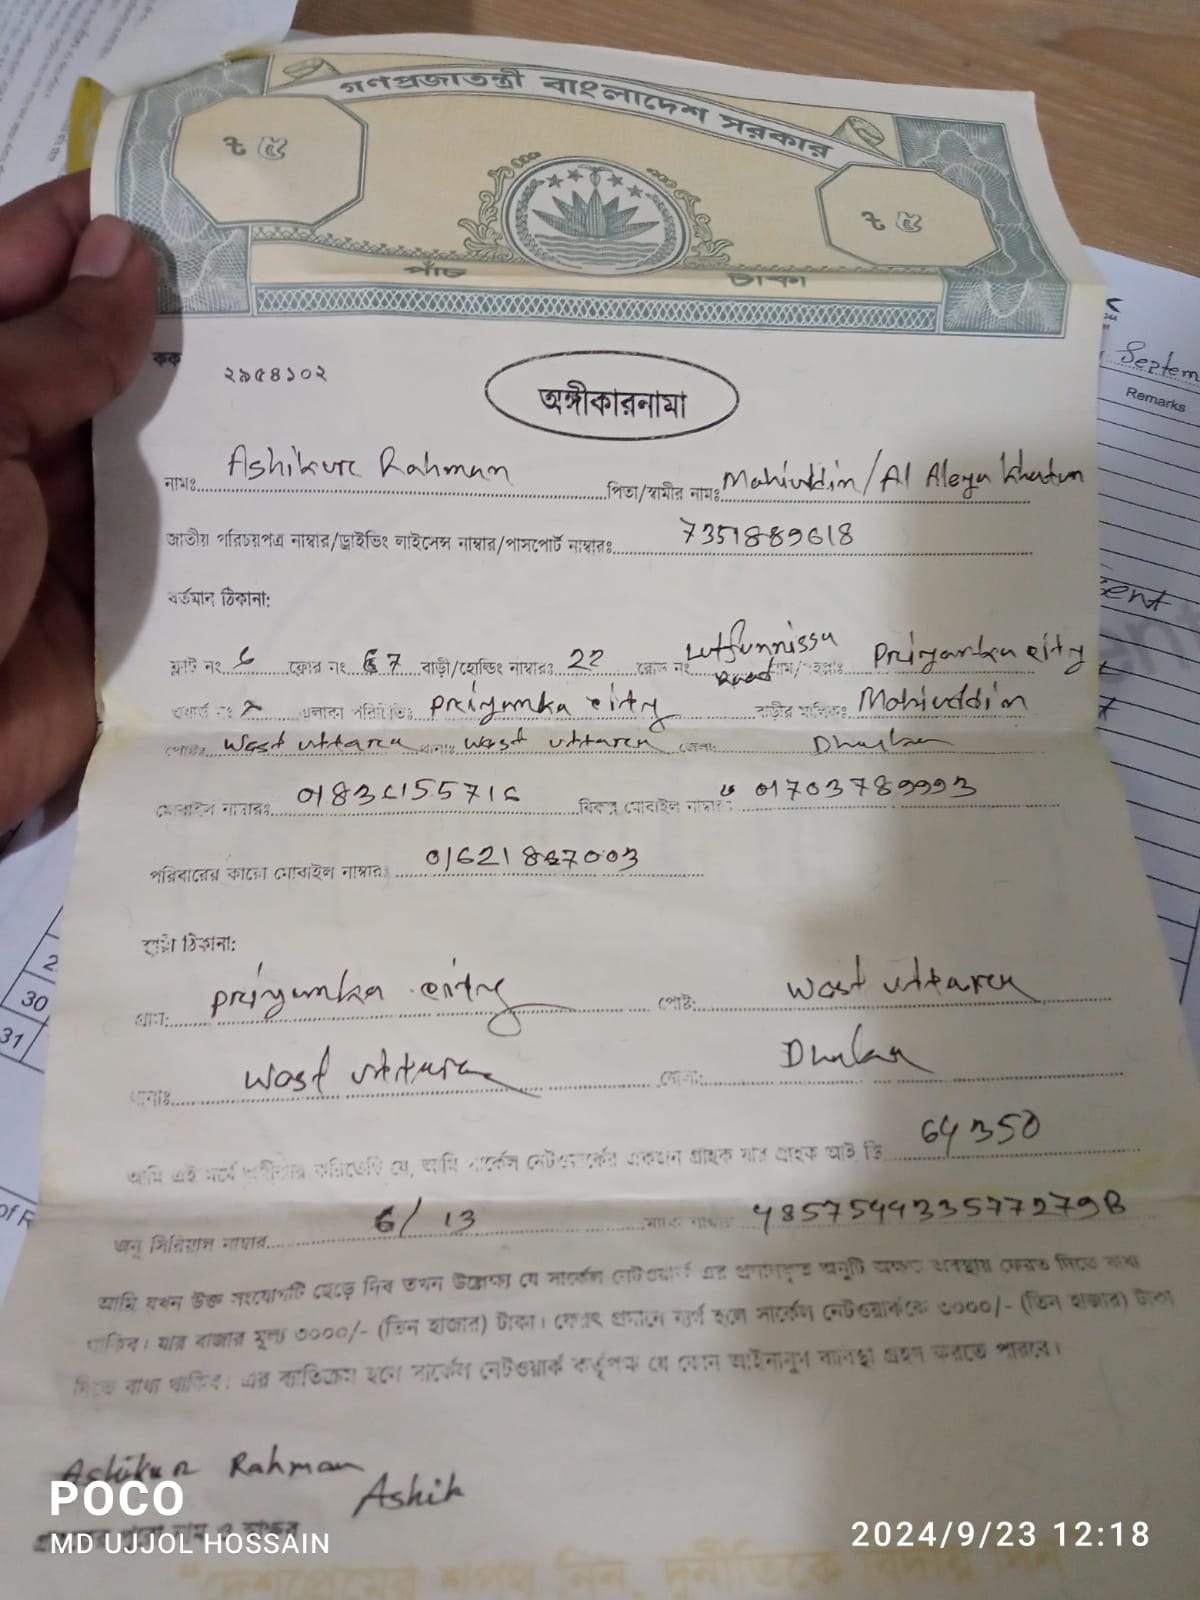 গণপ্রজাতন্ত্রী বাংলাদেশ সরকার
৳ ৫
৳ ৫
পাঁচ টাকা
কক ২৯৫৪১০২
অঙ্গীকারনামা
নামঃ Ashikur Rahman পিতা/স্বামীর নামঃ Mohiuddin / Al Aleya Khatun
জাতীয় পরিচয়পত্র নাম্বার/ড্রাইভিং লাইসেন্স নাম্বার/পাসপোর্ট নাম্বারঃ 7351889618
বর্তমান ঠিকানা:
ফ্লাট নং 6 ফ্লোর নং 7 বাড়ী/হোল্ডিং নাম্বারঃ 22 রোড নং Lutfunnissa Road গ্রাম/মহল্লাঃ Priyanka city
ওয়ার্ড নং এলাকা পরিচিতিঃ Priyanka city বাড়ীর মালিকঃ Mohiuddin
পোষ্টঃ West uttara থানাঃ West uttara জেলা: Dhaka
মোবাইল নাম্বারঃ 01836155716 বিকল্প মোবাইল নাম্বার: 01703789993
পরিবারের কারো মোবাইল নাম্বার: 01621867003
স্থায়ী ঠিকানা:
গ্রাম: Priyanka city পোষ্ট: West uttara
থানাঃ West uttara জেলা: Dhaka
আমি এই মর্মে অঙ্গীকার করিতেছি যে, আমি সার্কেল নেটওয়ার্কের একজন গ্রাহক যার গ্রাহক আই ডি 64350
অনু সিরিয়াল নাম্বার 6/13 ম্যাক নাম্বার 485754433577279B
আমি যখন উক্ত সংযোগটি ছেড়ে দিব তখন উল্লেখ্য যে সার্কেল নেটওয়ার্ক এর প্রদানকৃত অনুটি অক্ষত অবস্থায় ফেরত দিতে বাধ্য
থাকিব। যার বাজার মূল্য ৩০০০/- (তিন হাজার) টাকা। ফেরৎ প্রদানে ব্যর্থ হলে সার্কেল নেটওয়ার্ককে ৩০০০/- (তিন হাজার) টাকা
দিতে বাধ্য থাকিব। এর ব্যতিক্রম হলে সার্কেল নেটওয়ার্ক কর্তৃপক্ষ যে কোন আইনানুগ ব্যবস্থা গ্রহন করতে পারবে।
Ashikur Rahman
Ashik
POCO
MD UJJOL HOSSAIN
2024/9/23 12:18
"দেশপ্রেমের শপথ নিন, দুর্নীতিকে বিদায় দিন
Septem
Remarks
30
31